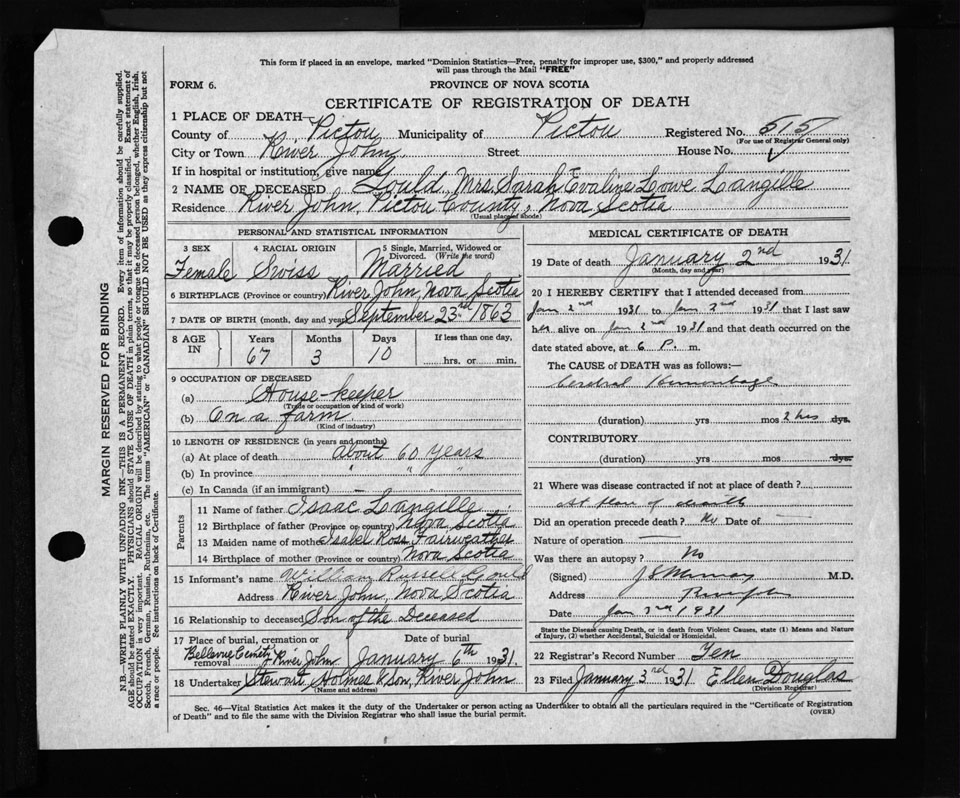 This form if placed in an envelope, marked "Dominion Statistics—Free, penalty for improper use, $300," and properly addressed
will pass through the Mail "FREE"
FORM 6. PROVINCE OF NOVA SCOTIA
CERTIFICATE OF REGISTRATION OF DEATH
1 PLACE OF DEATH—
County of Pictou Municipality of Pictou Registered No. 515
(For use of Registrar General only)
City or Town River John Street House No.
If in hospital or institution, give name
2 NAME OF DECEASED Gould, Mrs. Sarah Evaline Lowe Langille
Residence River John, Pictou County, Nova Scotia
(Usual place of abode)
PERSONAL AND STATISTICAL INFORMATION
3 SEX 4 RACIAL ORIGIN 5 Single, Married, Widowed or
Divorced. (Write the word)
Female Swiss Married
6 BIRTHPLACE (Province or country) River John, Nova Scotia
7 DATE OF BIRTH (month, day and year) September 23rd 1863
8 AGE IN Years Months Days If less than one day,
67 3 10 hrs. or min.
9 OCCUPATION OF DECEASED
(a) House-keeper
(Trade or occupation or kind of work)
(b) On a farm
(Kind of industry)
10 LENGTH OF RESIDENCE (in years and months)
(a) At place of death about 60 years
(b) In province " " "
(c) In Canada (if an immigrant) —
Parents
11 Name of father Isaac Langille
12 Birthplace of father (Province or country) Nova Scotia
13 Maiden name of mother Isabel Ross Fairweather
14 Birthplace of mother (Province or country) Nova Scotia
15 Informant's name William Russell Gould
Address River John, Nova Scotia
16 Relationship to deceased Son of the Deceased
17 Place of burial, cremation or Date of burial
removal Bellevue Cemetry River John January 6th 1931
18 Undertaker Stewart, Holmes & Son, River John
(Name and address)
MEDICAL CERTIFICATE OF DEATH
19 Date of death January 2nd 1931
(Month, day and year)
20 I HEREBY CERTIFY that I attended deceased from
Jan 2nd 1931 to Jan 2nd 1931 that I last saw
her alive on Jan 2nd 1931 and that death occurred on the
date stated above, at 6 P. m.
The CAUSE OF DEATH was as follows:—
Cerebral Hemorrhage
(duration) yrs mos 2 hrs dys.
CONTRIBUTORY
(duration) yrs mos dys.
21 Where was disease contracted if not at place of death?
At place of death
Did an operation precede death? No Date of —
Nature of operation —
Was there an autopsy? No
(Signed) M.D.
Address
Date Jan 3rd 1931
State the Disease causing Death, or in death from Violent Causes, state (1) Means and Nature
of Injury, (2) whether Accidental, Suicidal or Homicidal.
22 Registrar's Record Number Ten
23 Filed January 3rd 1931 Ellen Douglas
(Division Registrar)
Sec. 46—Vital Statistics Act makes it the duty of the Undertaker or person acting as Undertaker to obtain all the particulars required in the "Certificate of Registration
of Death" and to file the same with the Division Registrar who shall issue the burial permit. (OVER)
MARGIN RESERVED FOR BINDING
N.B.—WRITE PLAINLY WITH UNFADING INK—THIS IS A PERMANENT RECORD. Every item of information should be carefully supplied.
AGE should be stated EXACTLY. PHYSICIANS should STATE CAUSE OF DEATH in plain terms, so that it may be properly classified. Exact statement of
OCCUPATION is very important. RACIAL ORIGIN will be described by stating to what people or tongue the deceased person belonged, whether English, Irish,
Scotch, French, German, Russian, Ruthenian, etc. The terms "AMERICAN" or "CANADIAN" SHOULD NOT BE USED as they express citizenship but not
a race or people. See instructions on back of Certificate.